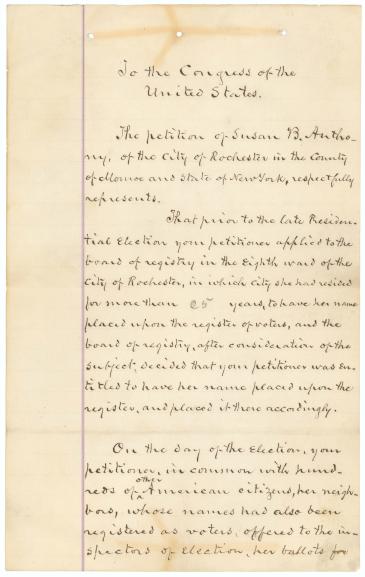 To the Congress of the
United States.
The petition of Susan B. Antho-
ny, of the City of Rochester in the County
of Monroe and State of New York, respectfully
represents.
That prior to the late Presiden-
tial Election your petitioner applied to the
board of registry in the Eighth ward of the
City of Rochester, in which City she had resided
for more than 25 years, to have her name
placed upon the register of voters, and the
board of registry, after consideration of the
subject, decided that your petitioner was en-
titled to have her name placed upon the
register, and placed it there accordingly.
On the day of the Election, your
petitioner, in common with hund-
reds of other American citizens, her neigh-
bors, whose names had also been
registered as voters, offered to the in-
spectors of Election, her ballots for